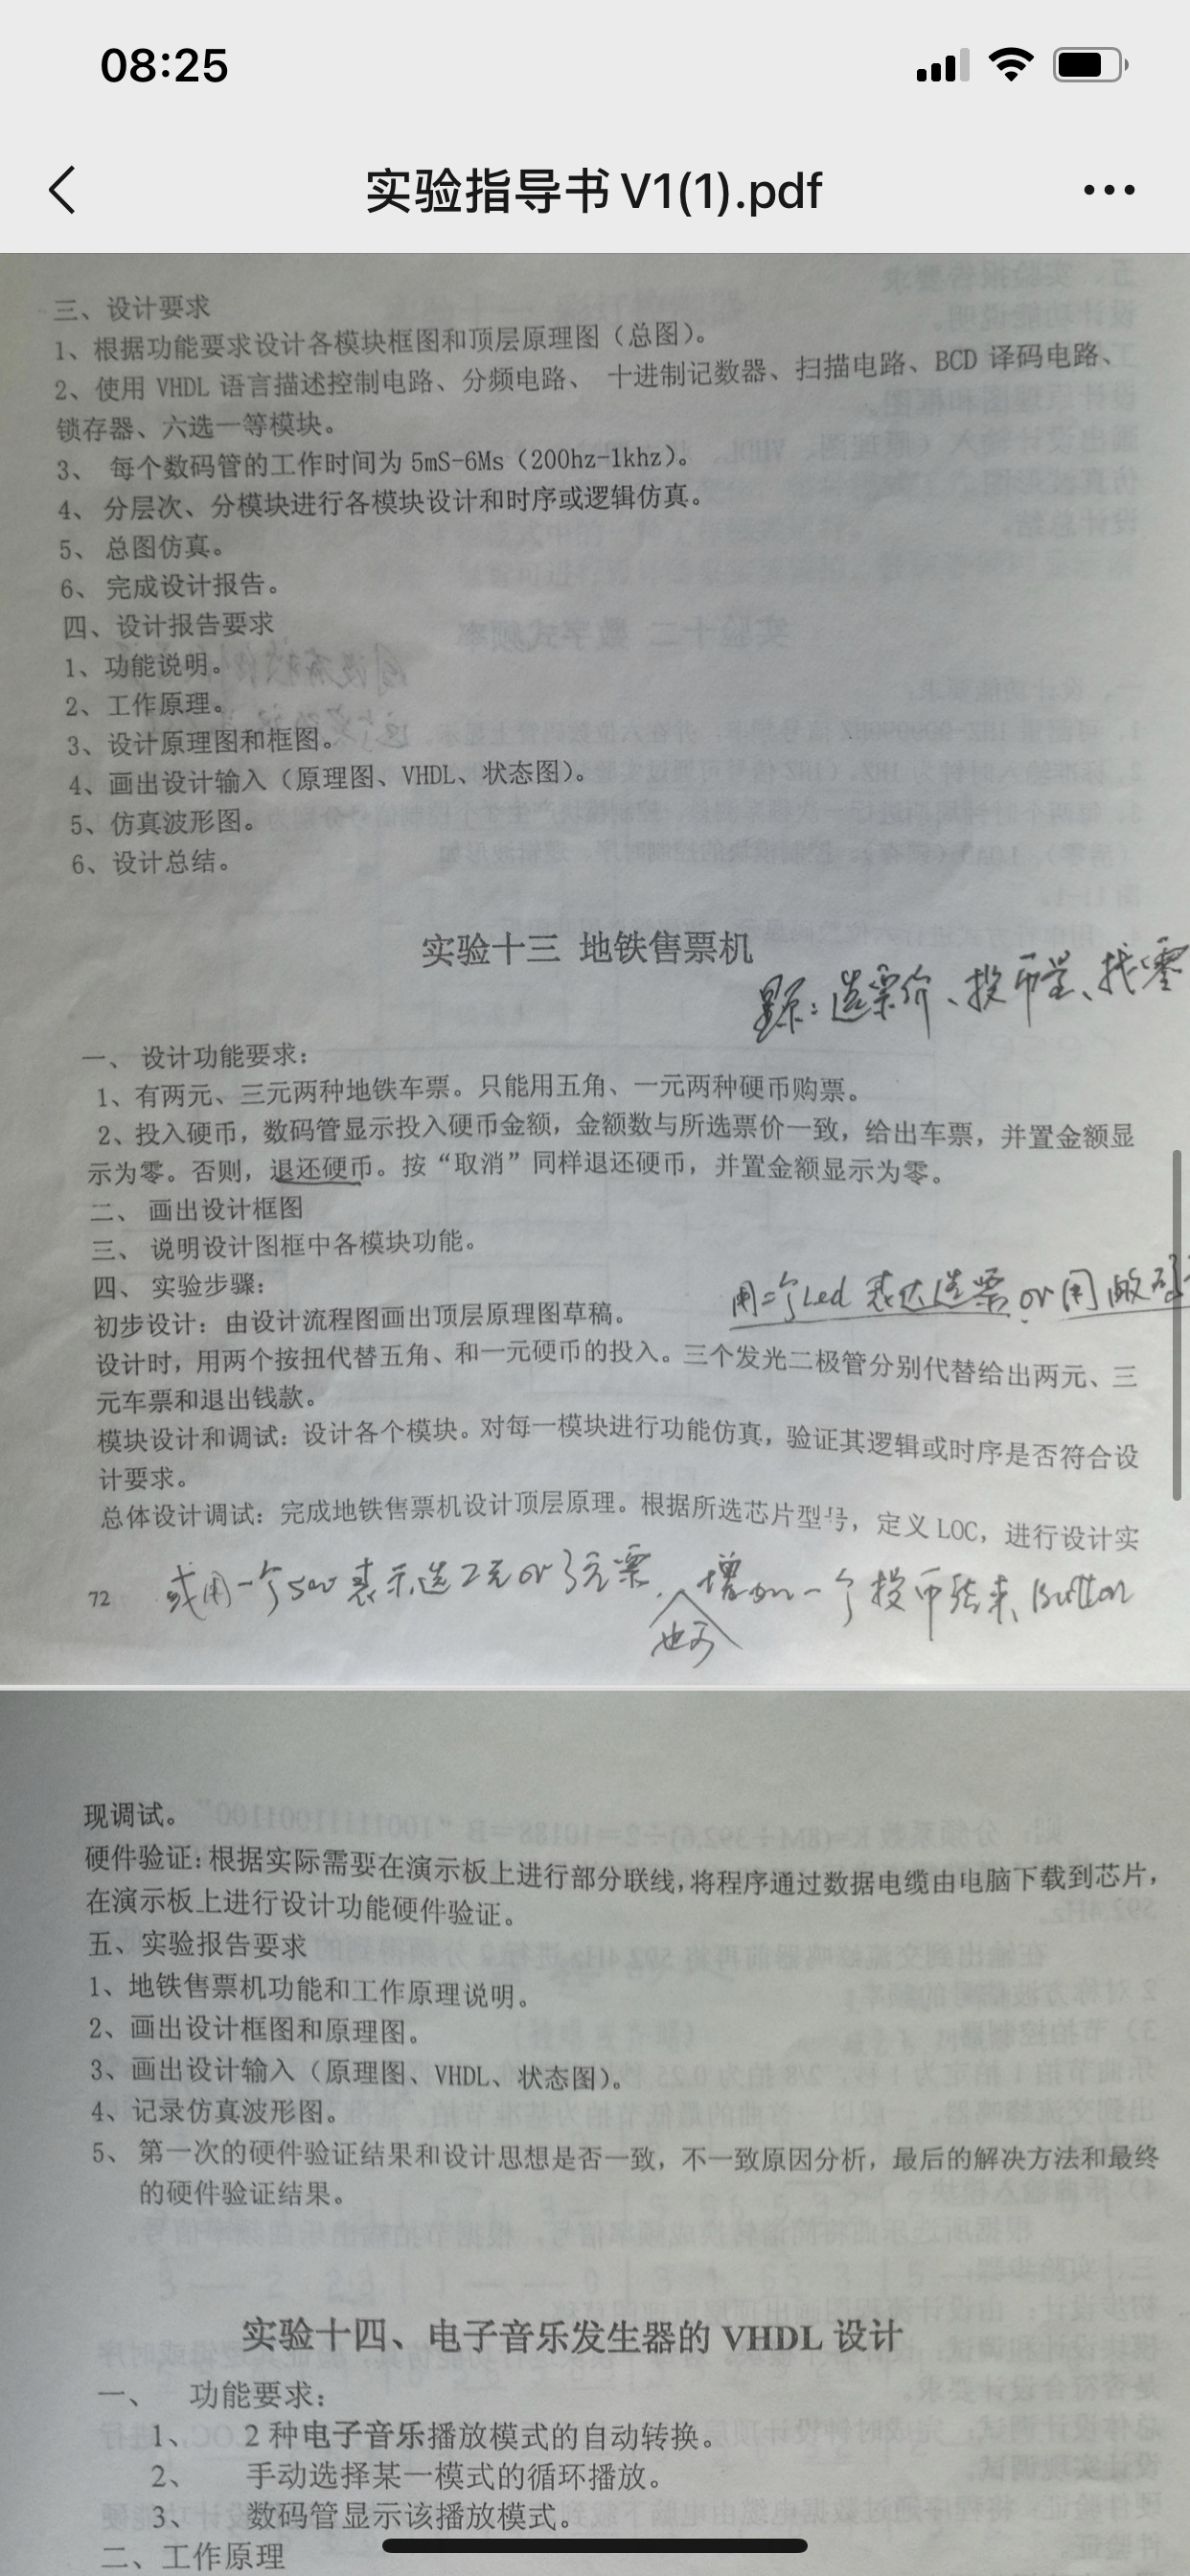 08:25
实验指导书V1(1).pdf
三、设计要求
1、根据功能要求设计各模块框图和顶层原理图（总图）。
2、使用 VHDL 语言描述控制电路、分频电路、 十进制记数器、扫描电路、BCD 译码电路、
锁存器、六选一等模块。
3、 每个数码管的工作时间为 5mS-6Ms（200hz-1khz）。
4、 分层次、分模块进行各模块设计和时序或逻辑仿真。
5、 总图仿真。
6、 完成设计报告。
四、设计报告要求
1、功能说明。
2、工作原理。
3、设计原理图和框图。
4、画出设计输入（原理图、VHDL、状态图）。
5、仿真波形图。
6、设计总结。
实验十三 地铁售票机
显示：选票价、投币量、找零
一、 设计功能要求：
1、有两元、三元两种地铁车票。只能用五角、一元两种硬币购票。
2、投入硬币，数码管显示投入硬币金额，金额数与所选票价一致，给出车票，并置金额显
示为零。否则，退还硬币。按“取消”同样退还硬币，并置金额显示为零。
二、 画出设计框图
三、 说明设计图框中各模块功能。
四、 实验步骤：
用二个Led 表达选票 or 用数码
初步设计：由设计流程图画出顶层原理图草稿。
设计时，用两个按扭代替五角、和一元硬币的投入。三个发光二极管分别代替给出两元、三
元车票和退出钱款。
模块设计和调试：设计各个模块。对每一模块进行功能仿真，验证其逻辑或时序是否符合设
计要求。
总体设计调试：完成地铁售票机设计顶层原理。根据所选芯片型号，定义 LOC，进行设计实
72
或用一个sw表示选2元or3元票. 增加一个投币结束Button
也可
现调试。
硬件验证：根据实际需要在演示板上进行部分联线，将程序通过数据电缆由电脑下载到芯片，
在演示板上进行设计功能硬件验证。
五、实验报告要求
1、地铁售票机功能和工作原理说明。
2、画出设计框图和原理图。
3、画出设计输入（原理图、VHDL、状态图）。
4、记录仿真波形图。
5、 第一次的硬件验证结果和设计思想是否一致，不一致原因分析，最后的解决方法和最终
的硬件验证结果。
实验十四、电子音乐发生器的 VHDL 设计
一、 功能要求：
1、 2 种电子音乐播放模式的自动转换。
2、 手动选择某一模式的循环播放。
3、 数码管显示该播放模式。
二、工作原理